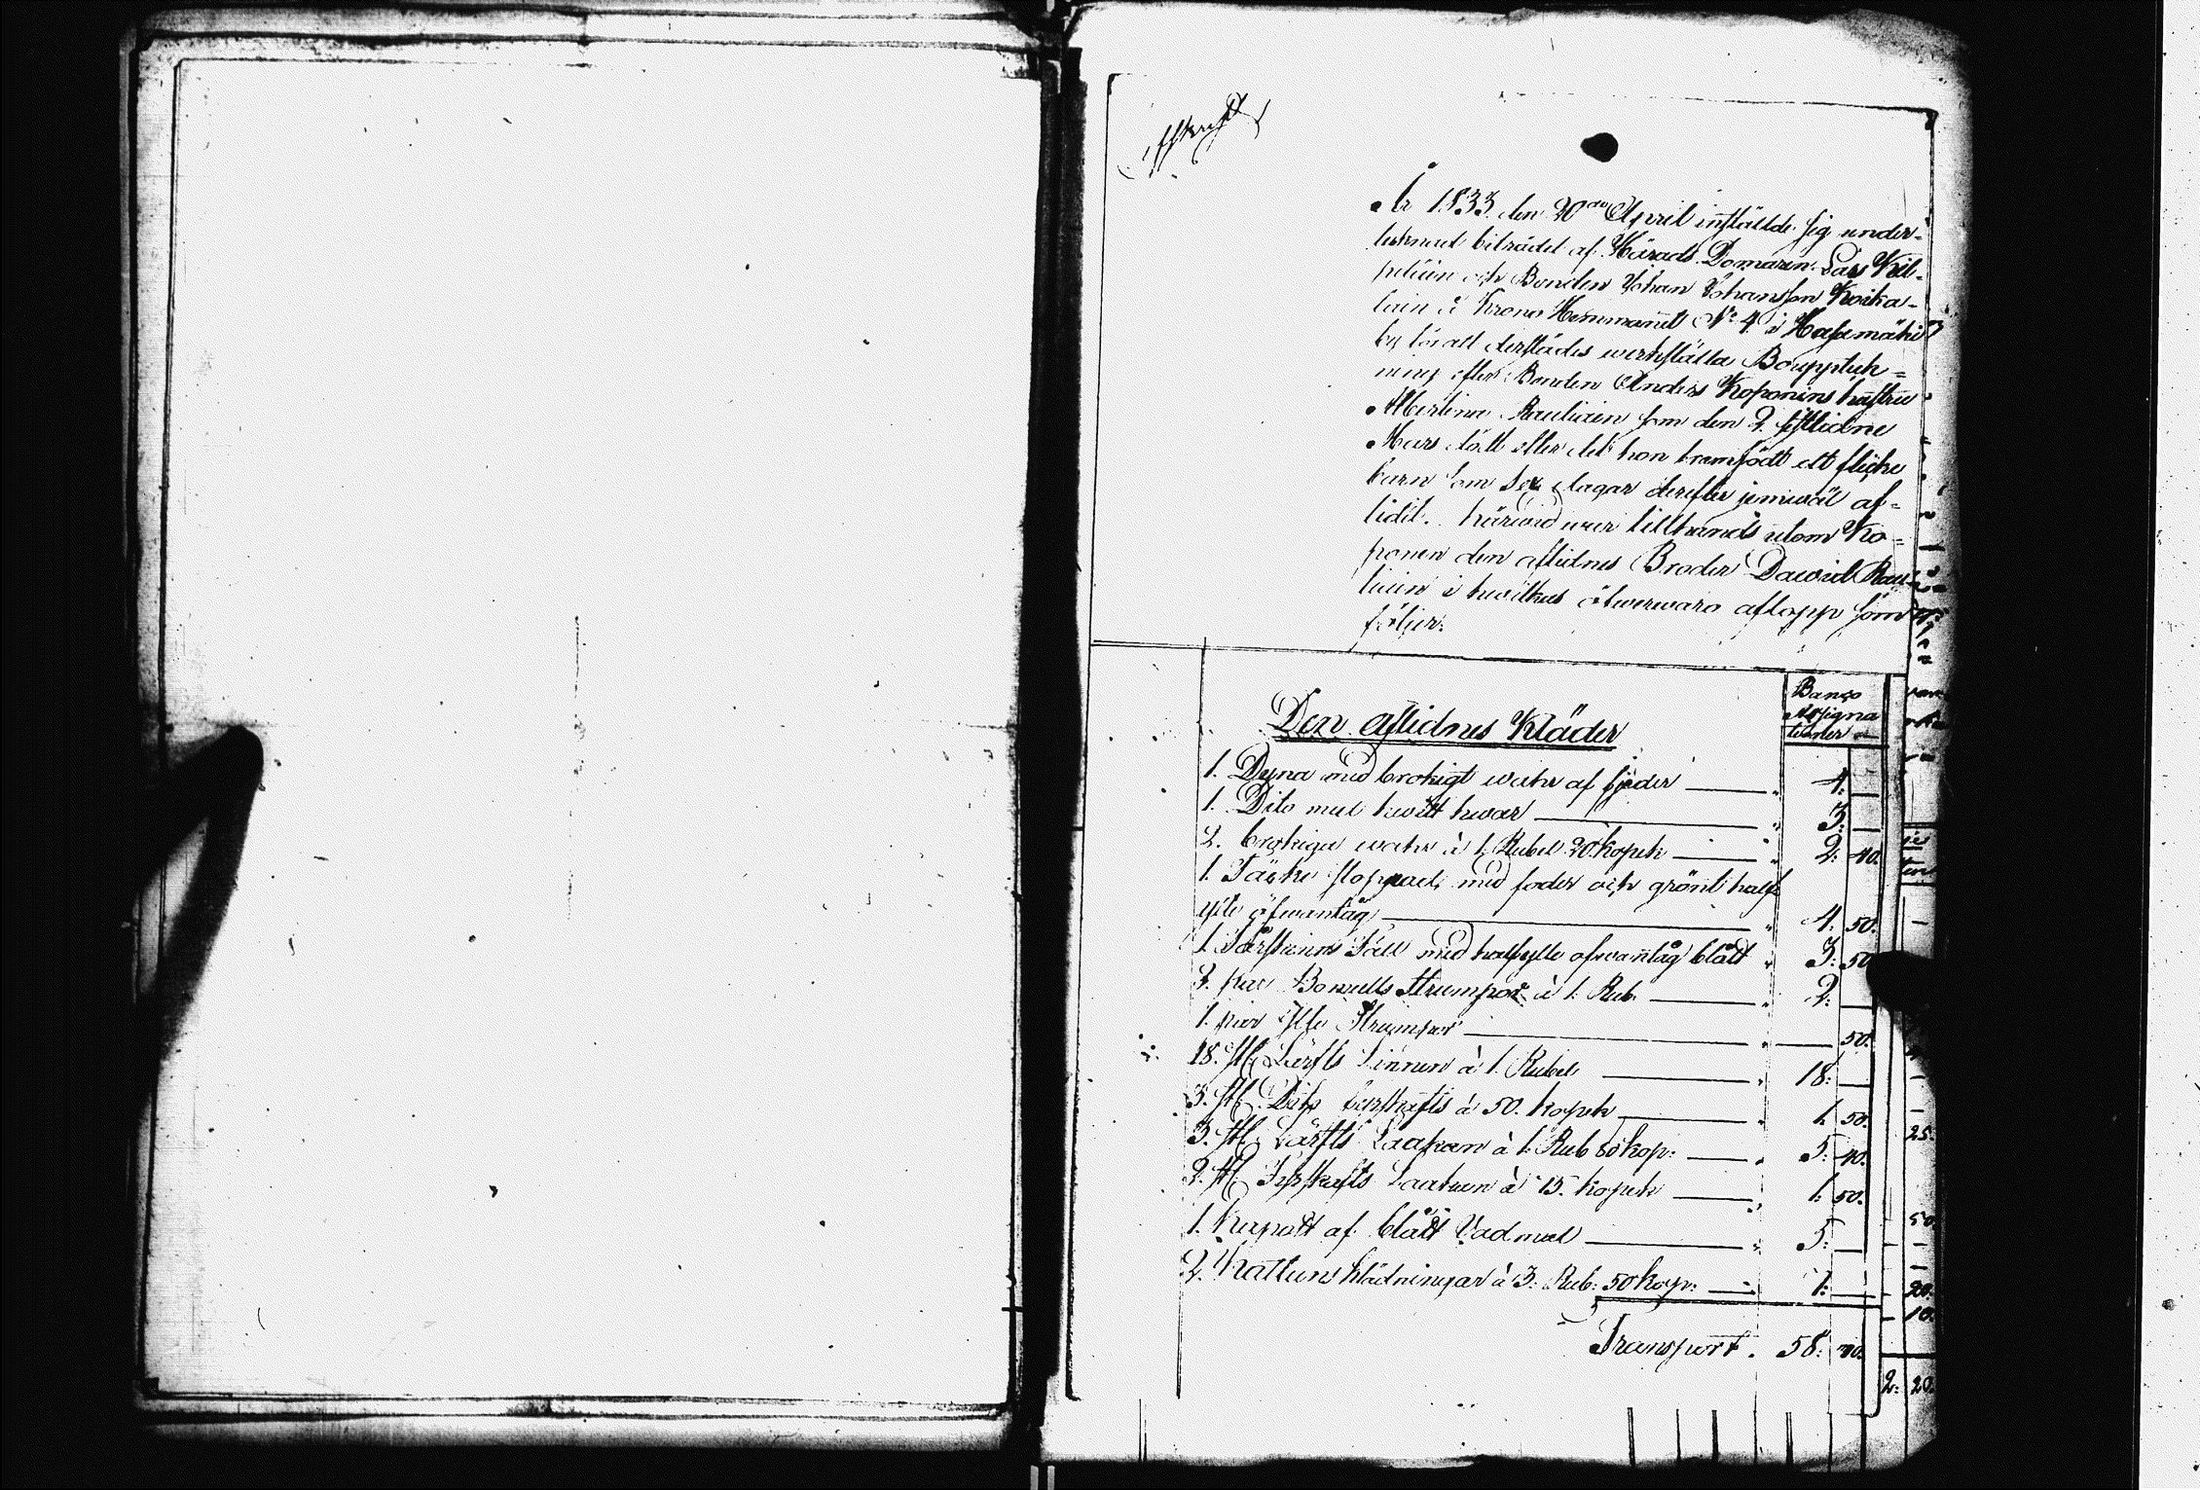 Afskrift
År 1833 den 20de April instälde sig under-
teknad biträdd af Härads Domaren Lars Kil-
peläin och Bonden Johan Johansson Koika-
lain å Krono Hemmanet No 4 i Hasamäki
by för att derstädes werkställa Bouppteck=
ning efter Bonden Anders Koponens hustru
Albertina Rauliain som den 2 sistlidne
Mars dödt efter det hon framfödt ett flicke
barn som sex dagar derefter jemwäl af=
lidit. härwid war tillhands utom Ko=
ponen den aflidnes Broder Dawid Rau-
liain i hwilkas öfwerwaro aflopp som
följer.
Banco
Assigna
tioner
Den aflidnes Kläder
1. Dyna med brokigt watn af fjäder 4. —
1. Dito med hwitt hwar 3. —
2. brokiga watn à 1 Rubel 20 kopek 2. 40.
1. Täcke stoppad, med foder och grönt half
ylle öfwantåg 4. 50.
1. Fårskinns Fäll med halfylle ofwantåg blått 3. 50
2. par Bomulls Strumpor à 1 Rub. 2. —
1. par ylle Strumpor — 50.
18. st. Lärfts Linnen à 1 Rubel 18. —
3. st. Dito à 50. kopek 1. 50.
3. st. Lärfts Laakan à 1. Rub 80 kop. 5. 40.
2. st. Laakan à 75. kopek 1. 50.
1. Kapott af blått Vadmal 5. —
2. Kattuns klädningar à 3. Rub. 50 kop. 7. —
Transport. 58. 40.